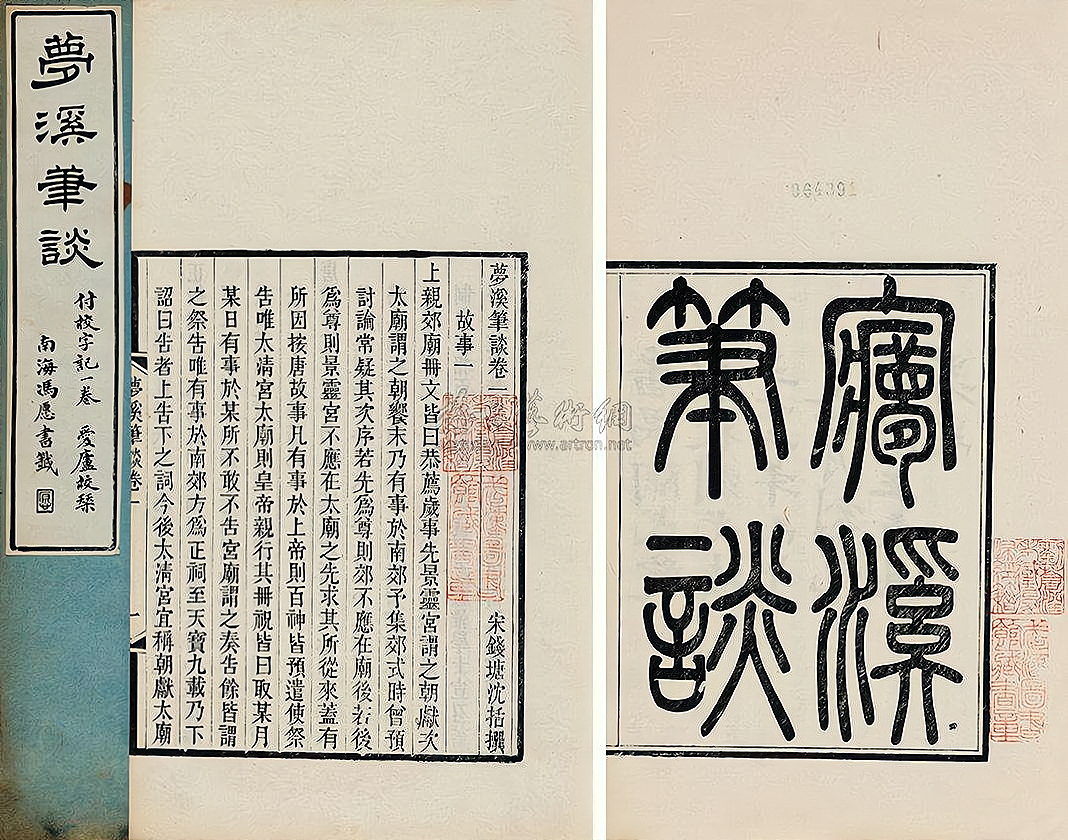 夢溪筆談
付校字記一卷 愛廬校栞
南海馮愿書籤
夢溪筆談卷一
宋錢塘沈括撰
故事一
上親郊廟冊文皆曰恭薦歲事先景靈宮謂之朝獻次
太廟謂之朝饗末乃有事於南郊予集郊式時曾預
討論常疑其次序若先為尊則郊不應在廟後若後
為尊則景靈宮不應在太廟之先求其所從來蓋有
所因按唐故事凡有事於上帝則百神皆預遣使祭
告唯太清宮太廟則皇帝親行其冊祝皆曰取某月
某日有事於某所不敢不告宮廟謂之奏告餘皆謂
之祭告唯有事於南郊方為正祠至天寶九載乃下
詔曰告者上告下之詞今後太清宮宜稱朝獻太廟
夢溪筆談卷一
一
064391
夢溪
筆談
藝術網
www.artron.net